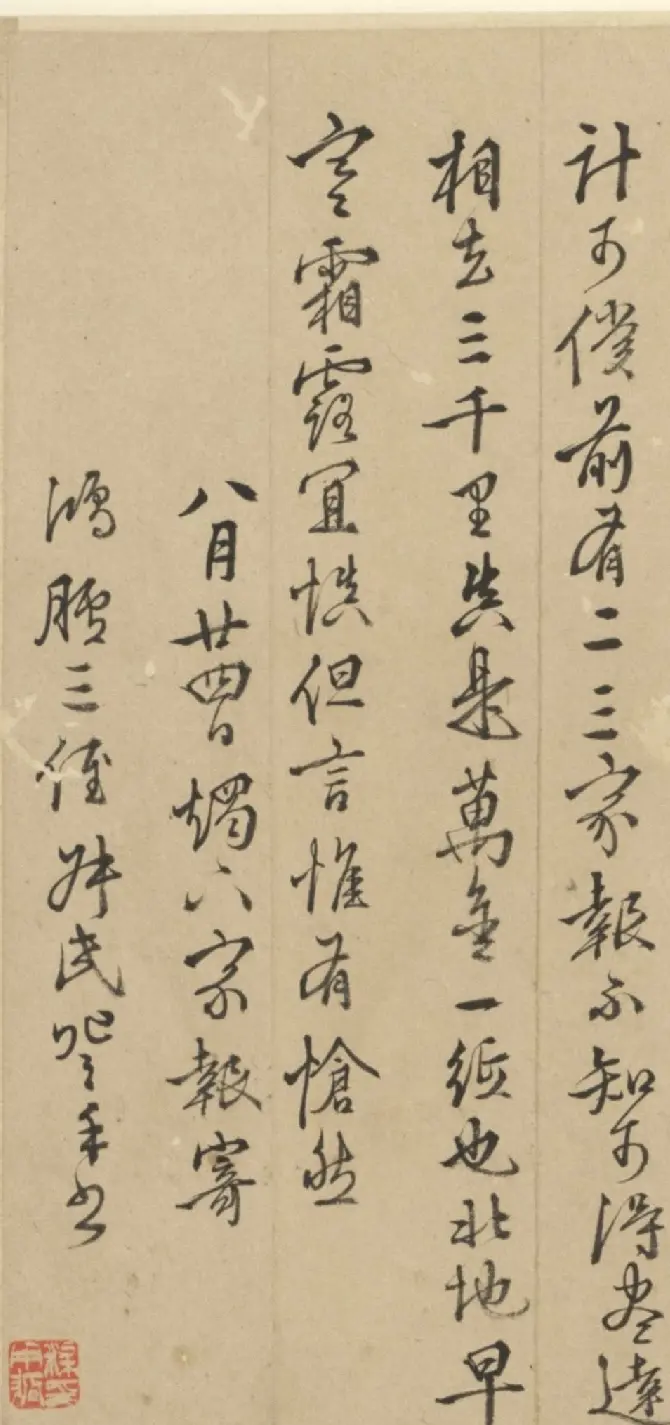 計可僕前有二三家報不知可得盡達
相去三千里真是萬金一紙也北地早
寒霜露宜慎但言惟有愴然
八月廿四日燭下家報寄
鴻臚三侄 舜民